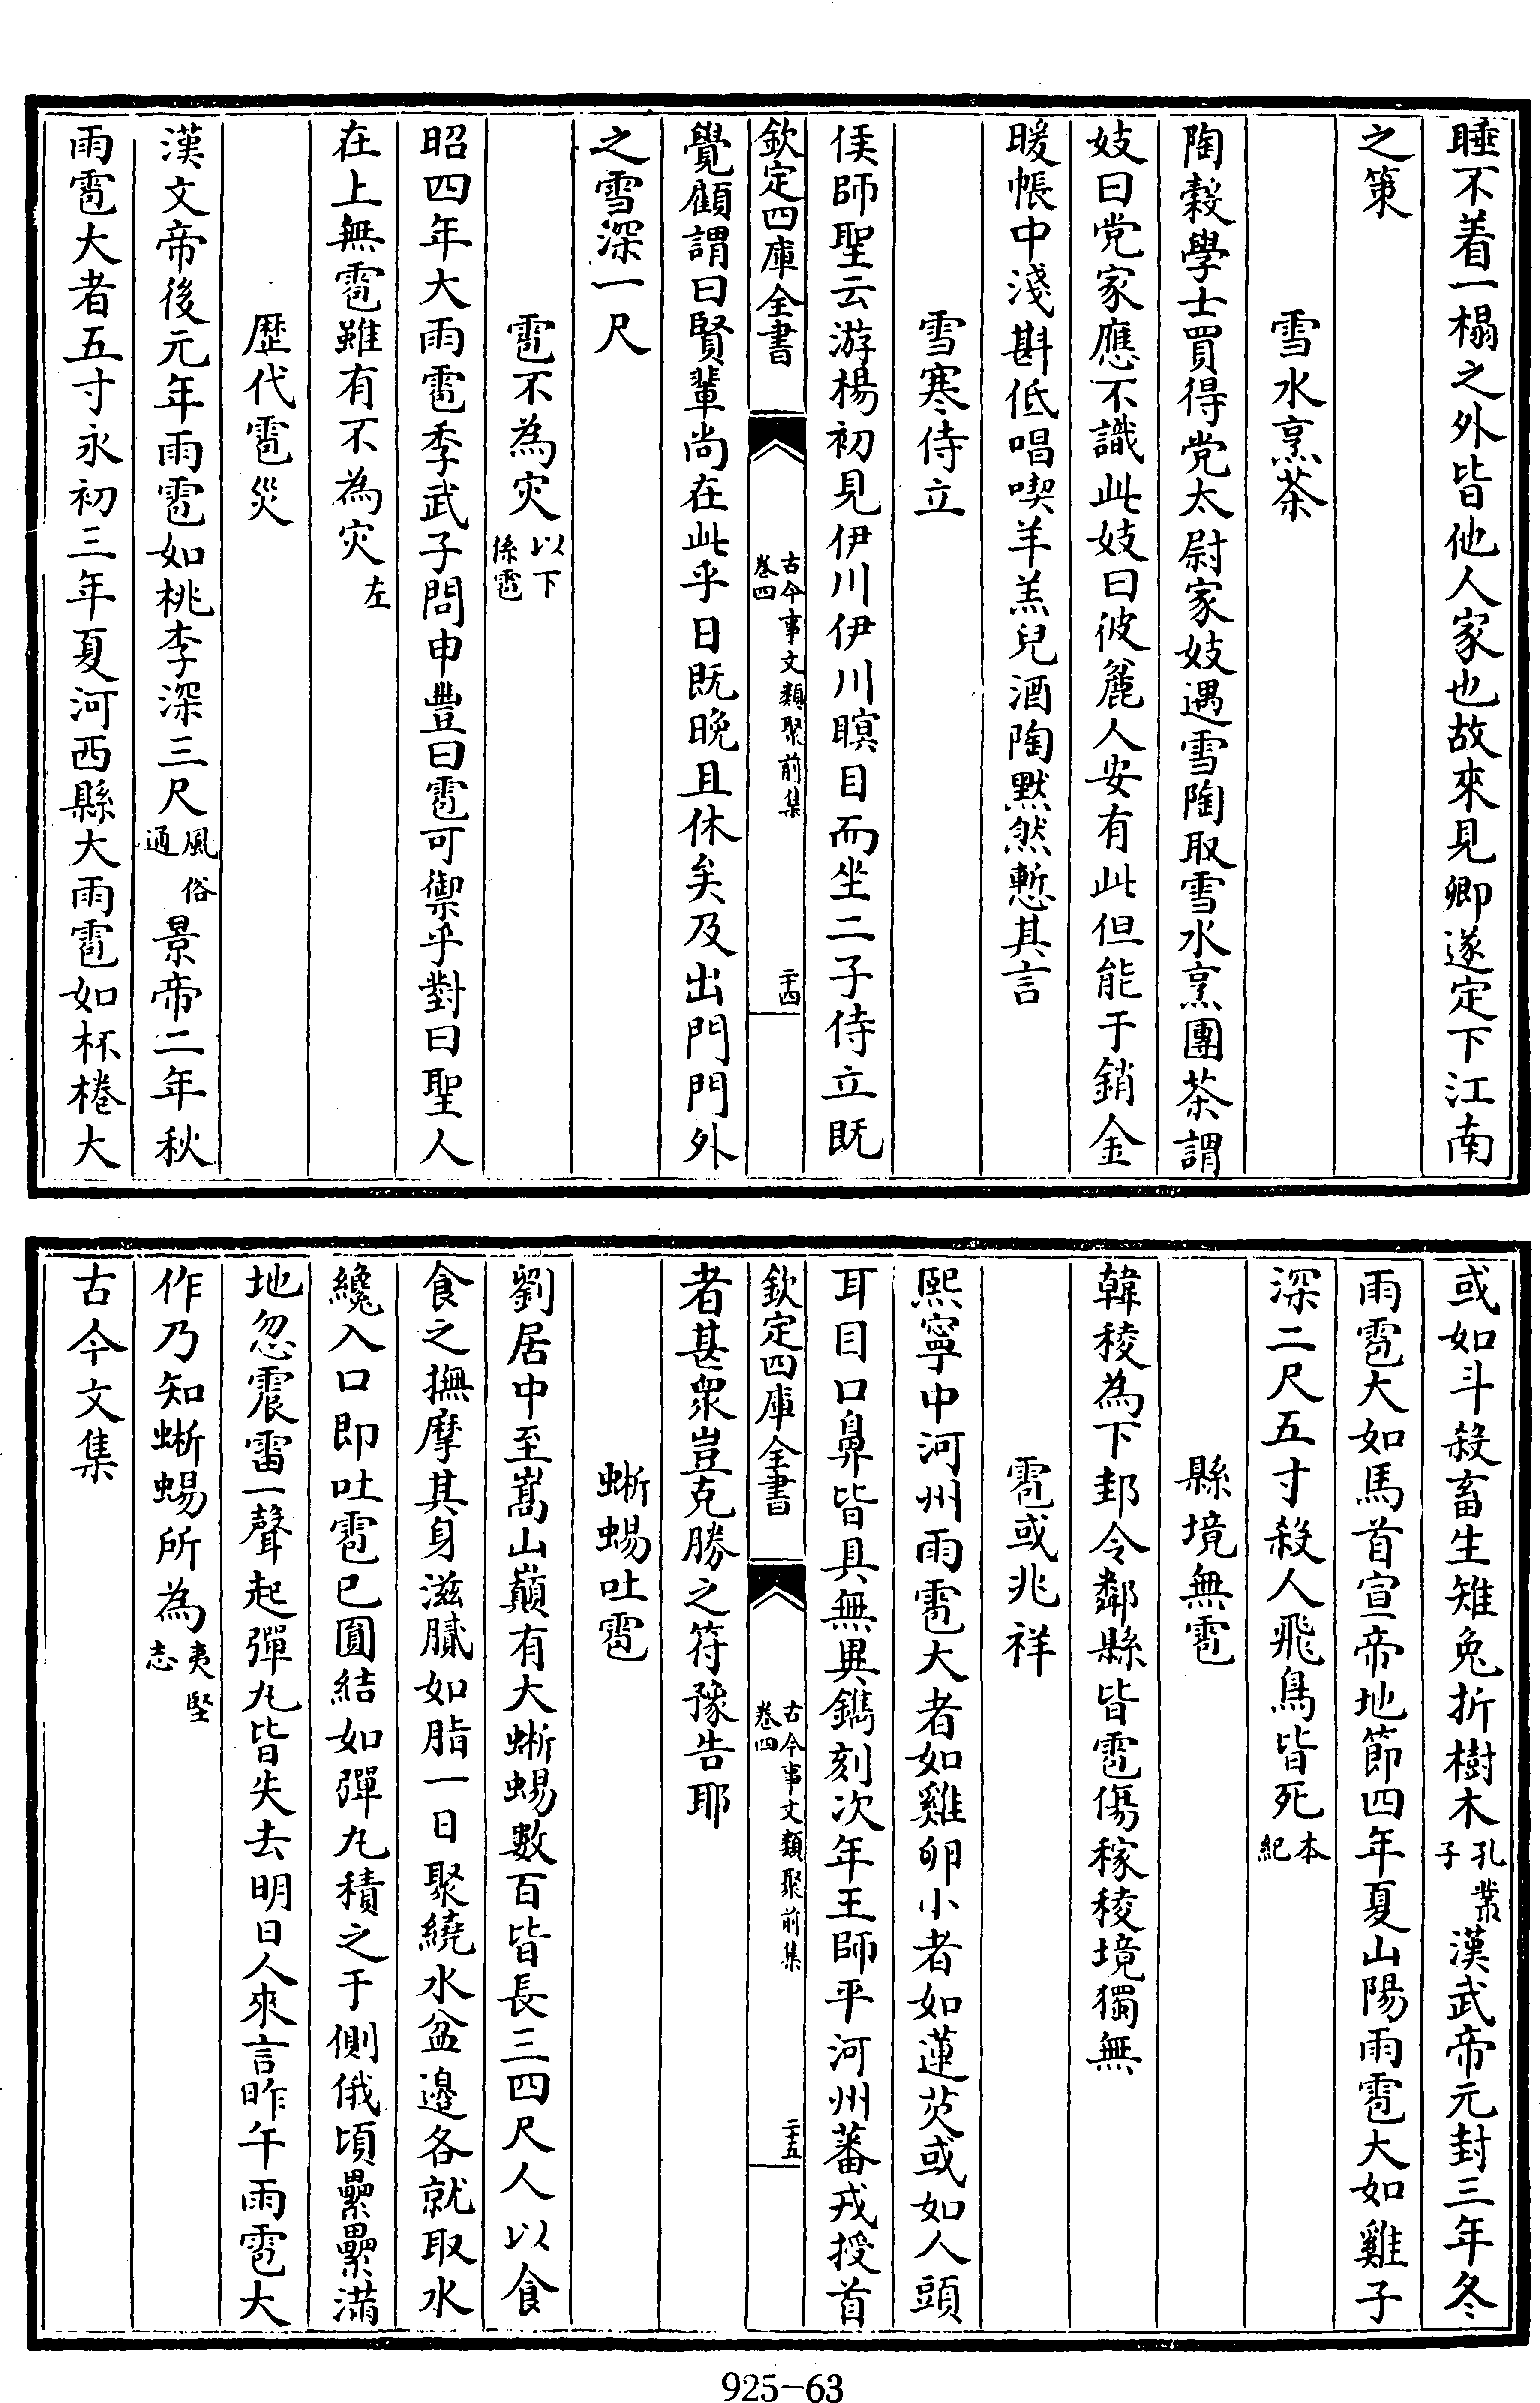 睡不着一榻之外皆他人家也故來見卿遂定下江南
之策
雪水烹茶
陶穀學士買得党太尉家妓遇雪陶取雪水烹團茶謂
妓曰党家應不識此妓曰彼麄人安有此但能于銷金
暖帳中淺斟低唱喫羊羔兒酒陶默然慙其言
雪寒侍立
侯師聖云游楊初見伊川伊川瞑目而坐二子侍立既
欽定四庫全書
古今事文類聚前集
卷四
二十四
覺顧謂曰賢輩尚在此乎日既晚且休矣及出門門外
之雪深一尺
雹不為灾以下係雹
昭四年大雨雹季武子問申豐曰雹可禦乎對曰聖人
在上無雹雖有不為灾左
歴代雹災
漢文帝後元年雨雹如桃李深三尺風俗通景帝二年秋
雨雹大者五寸永初三年夏河西縣大雨雹如杯棬大
或如斗殺畜生雉兔折樹木孔叢子漢武帝元封三年冬
雨雹大如馬首宣帝地節四年夏山陽雨雹大如雞子
深二尺五寸殺人飛鳥皆死本紀
縣境無雹
韓稜為下邽令鄰縣皆雹傷稼稜境獨無
雹或兆祥
熙寧中河州雨雹大者如雞卵小者如蓮芡或如人頭
耳目口鼻皆具無異鐫刻次年王師平河州蕃戎授首
欽定四庫全書
古今事文類聚前集
卷四
二十五
者甚衆豈克勝之符豫告耶
蜥蜴吐雹
劉居中至嵩山巔有大蜥蜴數百皆長三四尺人以食
食之撫摩其身滋膩如脂一日聚繞水盆邊各就取水
纔入口即吐雹已圓結如彈丸積之于側俄頃纍纍滿
地忽震雷一聲起彈丸皆失去明日人來言昨午雨雹大
作乃知蜥蜴所為夷堅志
古今文集
925-63